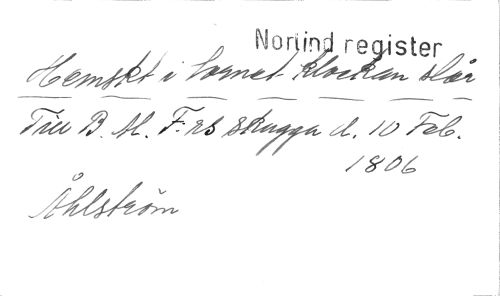 Norlind register
Hemskt i tornet klockan slår
Till B. M. F:rs skugga d. 10 Feb.
1806
Åhlström